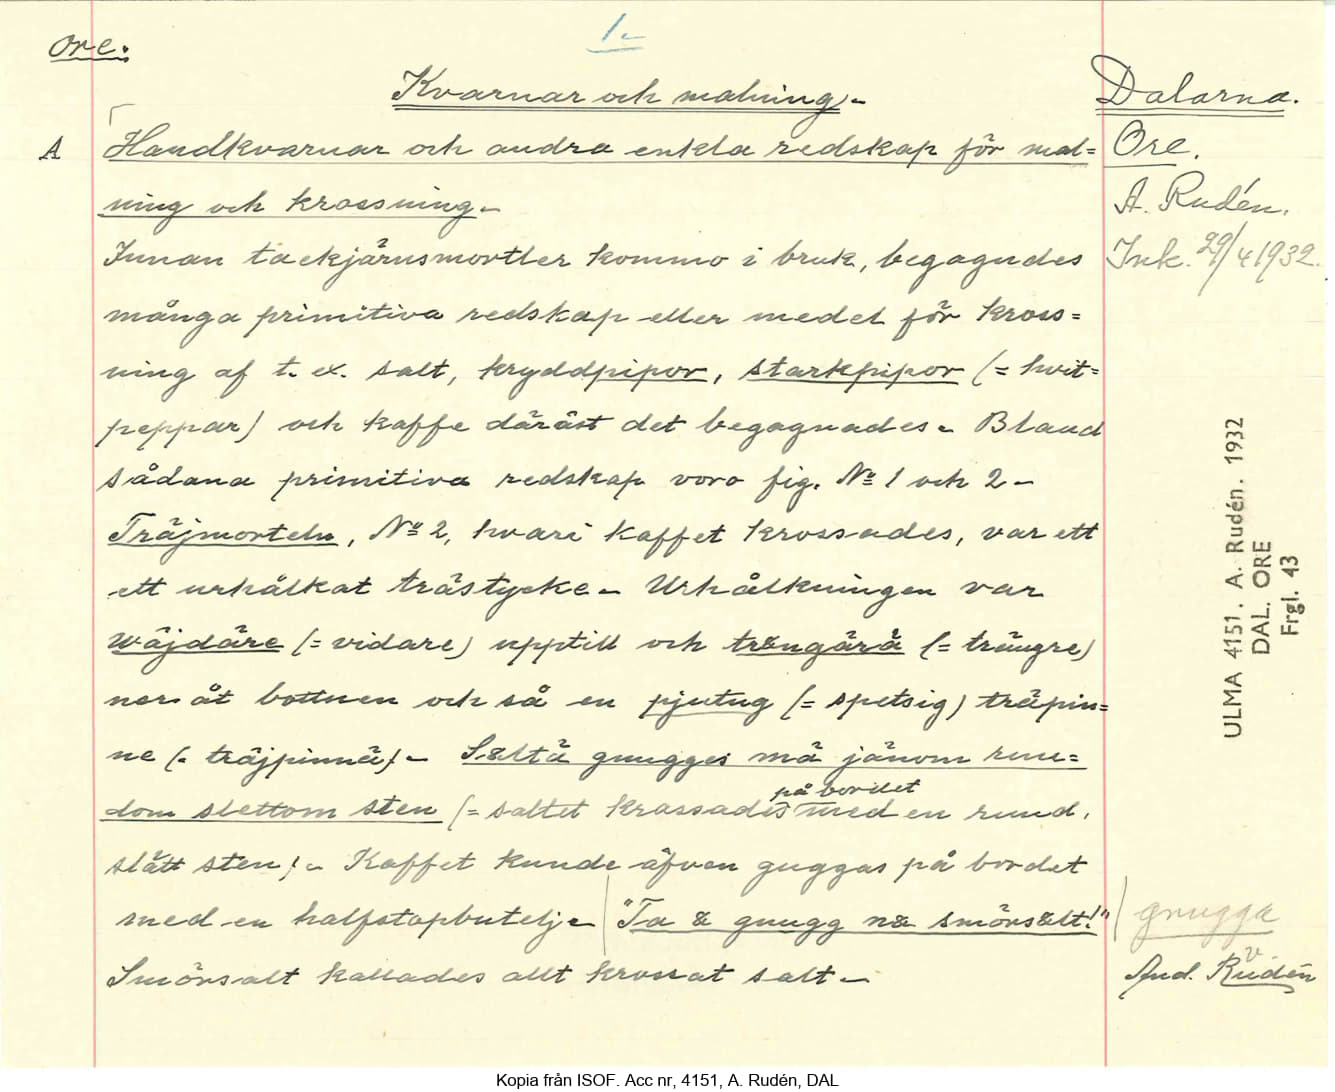 Ore.
1.
Kvarnar och malning.
Dalarna.
A
Handkvarnar och andra enkla redskap för mal=
Ore.
ning och krossning.
A. Rudén.
Innan tackjärnsmortler kommo i bruk, begagndes
Ink. 29/4 1932.
många primitiva redskap eller medel för kross=
ning af t. ex. salt, kryddpipor, starkpipor (= hvit=
peppar) och kaffe däräst det begagnades. Bland
sådana primitiva redskap voro fig. No 1 och 2.
Träjmorteln, No 2, hvari kaffet krossades, var ett
ett urhålkat trästycke. Urhålkningen var
wäjdäre (= vidare) upptill och trængärä (= trängre)
ner åt bottnen och så en pjutug (= spetsig) träpin=
ne (= träjpinnä). Sæltä gnugges mä jänom run=
dom slettom sten (= saltet krassades på bordet med en rund,
slätt sten). Kaffet kunde äfven guggas på bordet
med en halfstopbutelj. "Ta & gnugg næ smörsælt!"
gnugga
Smörsalt kallades allt krossat salt.
And. Rudén
ULMA 4151. A. Rudén. 1932
DAL. ORE
Frgl. 43
Kopia från ISOF. Acc nr, 4151, A. Rudén, DAL